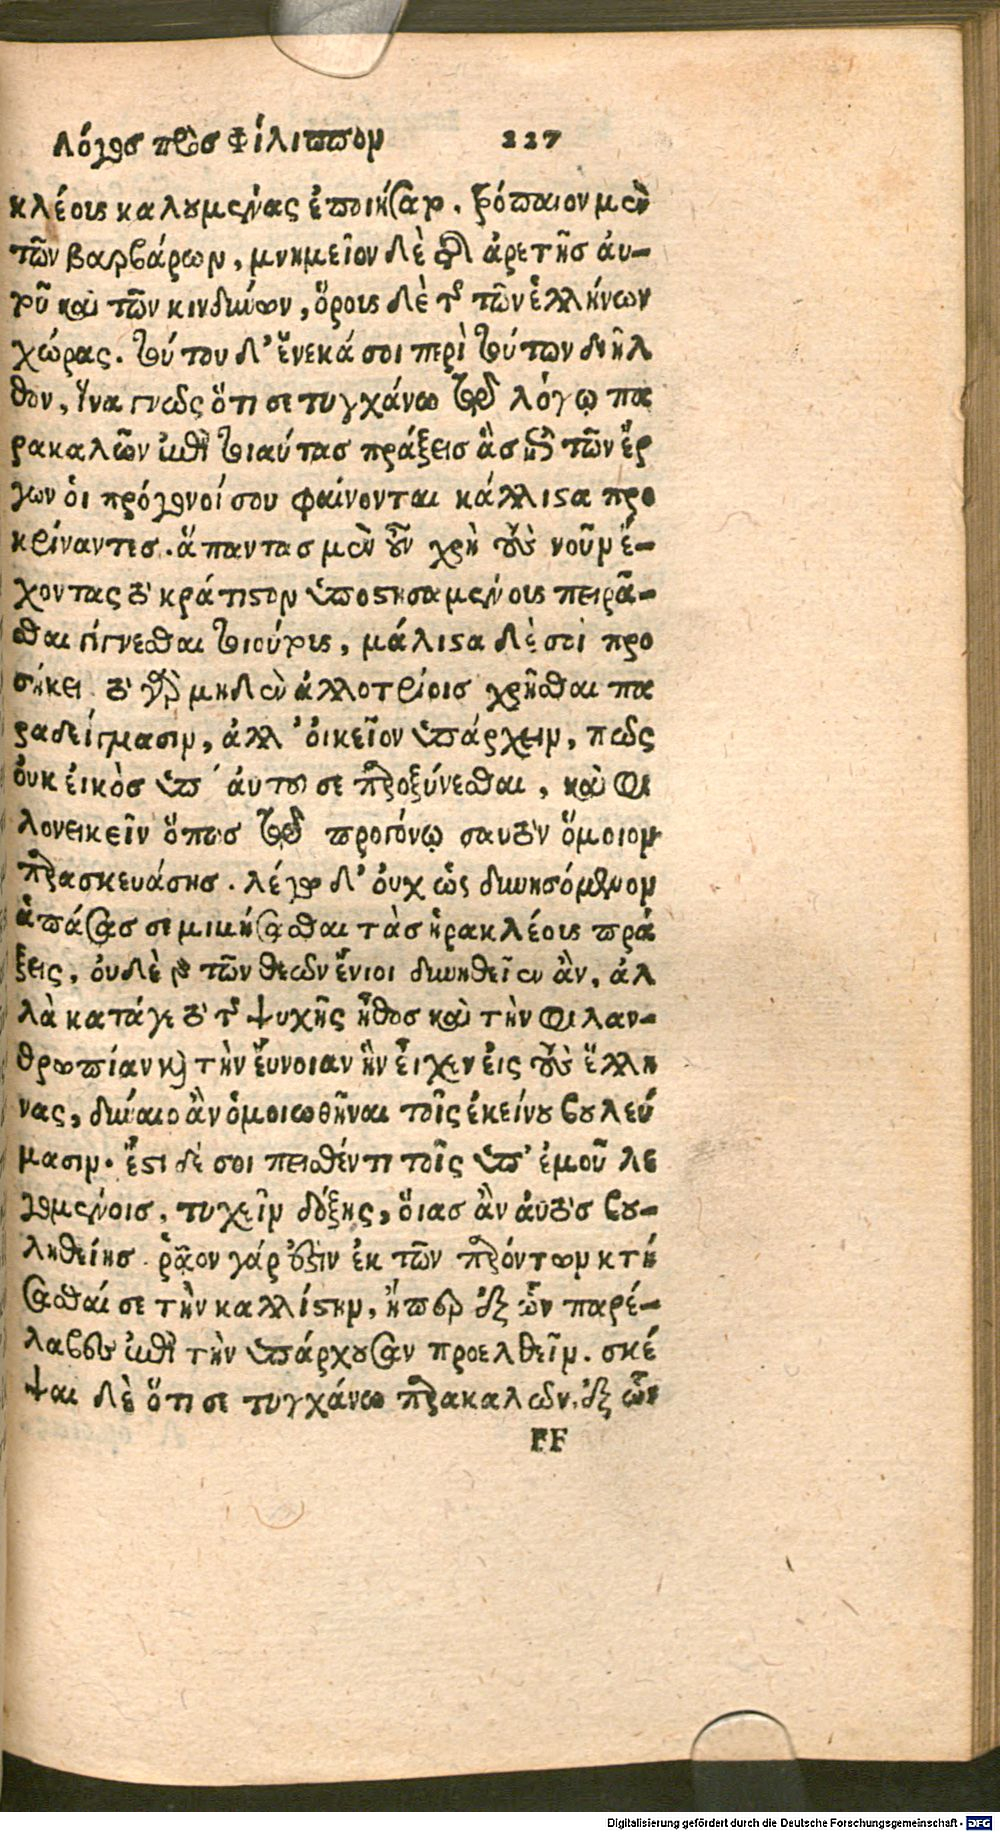 Λόγος πρὸς Φίλιππον 227
κλέους καλουμένας ἐποιήσατο. τρόπαιον μὲν
τῶν βαρβάρων, μνημεῖον δὲ τῆς ἀρετῆς αὑ-
τοῦ καὶ τῶν κινδύνων, ὅρους δὲ τῆς τῶν ἑλλήνων
χώρας. τούτου δ' ἕνεκά σοι περὶ τούτων διῆλ
θον, ἵνα γνῷς ὅτι σε τυγχάνω τῷ λόγῳ πα
ρακαλῶν ἐπὶ τοιαύτας πράξεις ἃς ἐπὶ τῶν ἔρ
γων οἱ πρόγονοί σου φαίνονται κάλλιστα προ
κρίναντες. ἅπαντας μὲν οὖν χρὴ τοὺς νοῦν ἔ-
χοντας τὸ κράτιστον ὑποστησαμένους πειρᾶ-
σθαι γίγνεσθαι τοιούτους, μάλιστα δὲ σοὶ προ
σήκει. τὸ γὰρ μηδὲν ἀλλοτρίοις χρῆσθαι πα
ραδείγμασιν, ἀλλ' οἰκεῖον ὑπάρχειν, πῶς
οὐκ εἰκὸς ὑπ' αὐτοῦ σε παροξύνεσθαι, καὶ φι
λονεικεῖν ὅπως τῷ προγόνῳ σαυτὸν ὅμοιον
παρασκευάσῃς. λέγω δ' οὐχ ὡς δυνησόμενον
ἁπάσας σε μιμήσασθαι τὰς ἡρακλέους πρά
ξεις, οὐδὲ γὰρ τῶν θεῶν ἔνιοι δυνηθεῖεν ἂν, ἀλ
λὰ κατάγε τὸ τῆς ψυχῆς ἦθος καὶ τὴν φιλαν-
θρωπίαν καὶ τὴν εὔνοιαν ἣν εἶχεν εἰς τοὺς ἕλλη
νας, δύναιο ἂν ὁμοιωθῆναι τοῖς ἐκείνου βουλεύ
μασιν. ἔστι δέ σοι πεισθέντι τοῖς ὑπ' ἐμοῦ λε
γομένοις, τυχεῖν δόξης, οἵας ἂν αὐτὸς βου-
ληθείης. ῥᾷον γάρ ἐστιν ἐκ τῶν παρόντων κτή
σασθαί σε τὴν καλλίστην, ἤπερ ἐξ ὧν παρέ-
λαβες ἐπὶ τὴν ὑπάρχουσαν προελθεῖν. σκέ
ψαι δὲ ὅτι σε τυγχάνω παρακαλῶν, ἐξ ὧν
FF
Digitalisierung gefördert durch die Deutsche Forschungsgemeinschaft - DFG